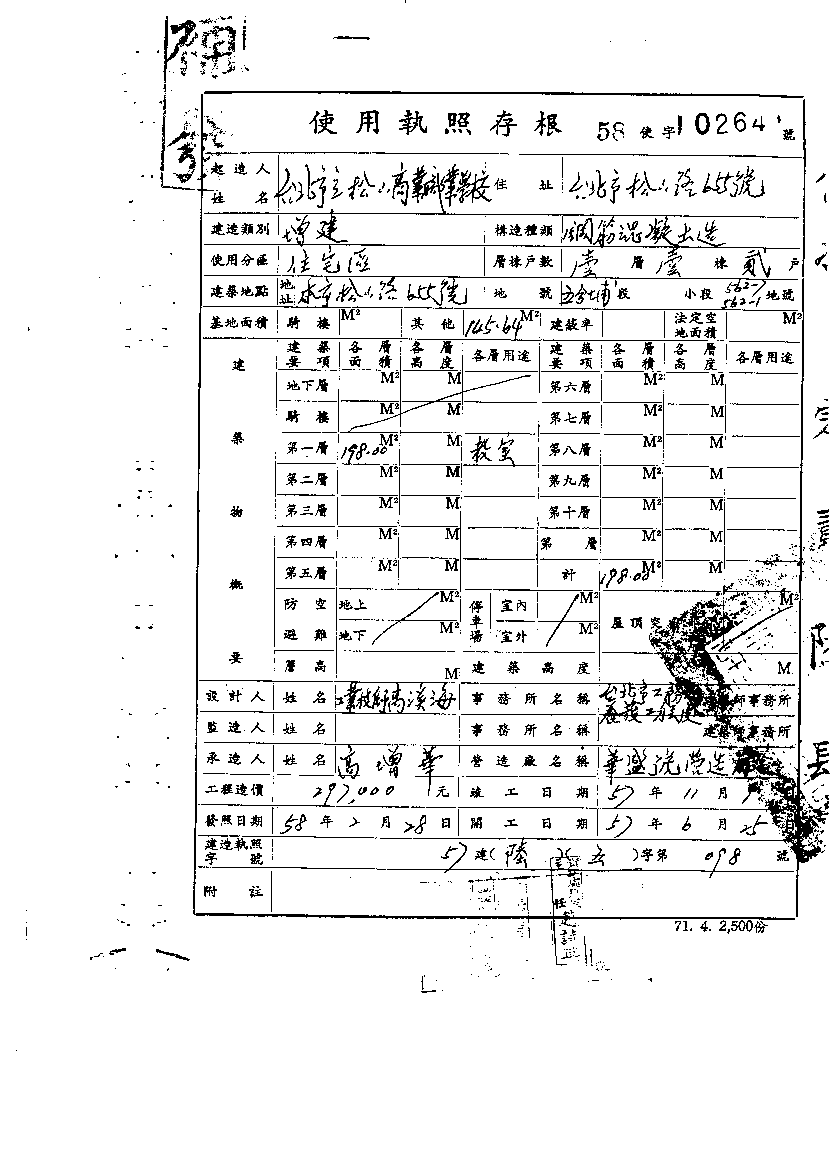 補發
使用執照存根 58 使字 10264 號
起造人姓名 台北市立松山高業職業學校 住址 台北市松山路655號
建造類別 增建 構造種類 鋼筋混凝土造
使用分區 住宅區 層棟戶數 壹層壹棟貳戶
建築地點 地址 本市松山路655號 地號 五分埔段 小段 562-7 562-1 地號
基地面積 騎樓 M² 其他 145.64 M² 建蔽率 法定空地面積 M²
建築物概要
建築要項 各層面積 各層高度 各層用途 建築要項 各層面積 各層高度 各層用途
地下層 M² M 第六層 M² M
騎樓 M² M 第七層 M² M
第一層 198.00 M² M 教室 第八層 M² M
第二層 M² M 第九層 M² M
第三層 M² M 第十層 M² M
第四層 M² M 第 層 M² M
第五層 M² M 計 198.00 M² M
防空避難 地上 M² 停車場 室內 M² 屋頂突 M²
地下 M² 室外 M²
層高 M 建築高度 M
設計人 姓名 高溪海 事務所名稱 台北市工 師事務所
監造人 姓名 事務所名稱 建築師事務所
承造人 姓名 高增華 營造廠名稱 華盛 營造
工程造價 297,000 元 竣工日期 57 年 11 月
發照日期 58 年 2 月 28 日 開工日期 57 年 6 月 25 日
建造執照字號 57 建(陸)(五)字第 098 號
附註
71. 4. 2,500份